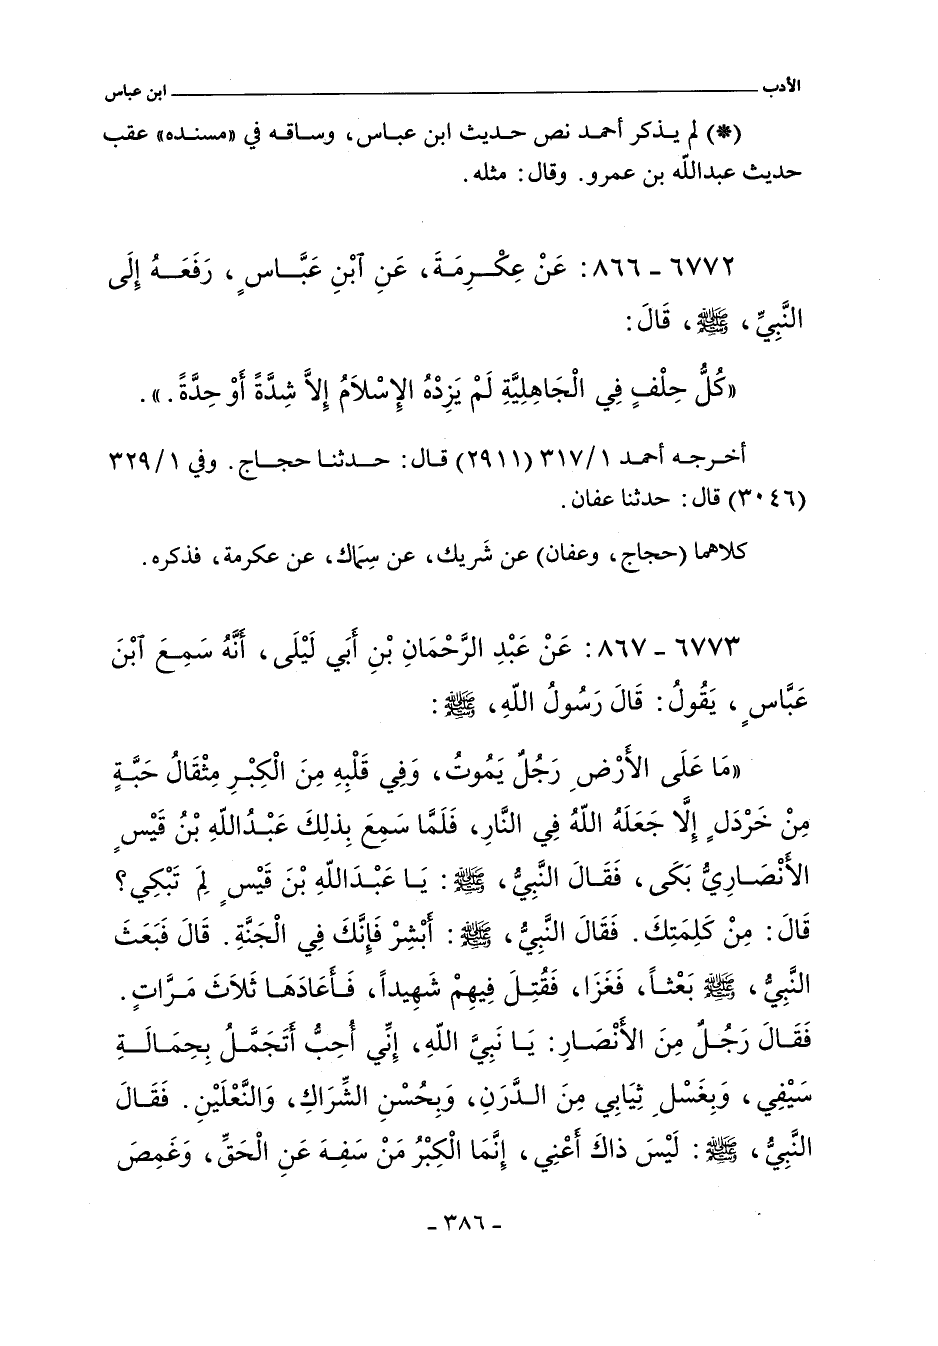 الأدب ــــــــــــــــــــ ابن عباس
(*) لم يذكر أحمد نص حديث ابن عباس، وساقه في «مسنده» عقب
حديث عبدالله بن عمرو. وقال: مثله.
٦٧٧٢ - ٨٦٦: عَنْ عِكْرِمَةَ، عَنِ ٱبْنِ عَبَّاسٍ، رَفَعَهُ إِلَى
النَّبِيِّ، ﷺ، قَالَ:
«كُلُّ حِلْفٍ فِي الْجَاهِلِيَّةِ لَمْ يَزِدْهُ الإِسْلاَمُ إِلاَّ شِدَّةً أَوْ حِدَّةً.».
أخرجه أحمد ٣١٧/١ (٢٩١١) قال: حدثنا حجاج. وفي ٣٢٩/١
(٣٠٤٦) قال: حدثنا عفان.
كلاهما (حجاج، وعفان) عن شَريك، عن سِمَاك، عن عكرمة، فذكره.
٦٧٧٣ - ٨٦٧: عَنْ عَبْدِ الرَّحْمَانِ بْنِ أَبَي لَيْلَى، أَنَّهُ سَمِعَ ٱبْنَ
عَبَّاسٍ، يَقُولُ: قَالَ رَسُولُ اللّهِ، ﷺ:
«مَا عَلَى الأَرْضِ رَجُلٌ يَمُوتُ، وَفِي قَلْبِهِ مِنَ الْكِبْرِ مِثْقَالُ حَبَّةٍ
مِنْ خَرْدَلٍ إِلَّا جَعَلَهُ اللّهُ فِي النَّارِ، فَلَمَّا سَمِعَ بِذلِكَ عَبْدُاللّهِ بْنُ قَيْسٍ
الأَنْصَارِيُّ بَكَى، فَقَالَ النَّبِيُّ، ﷺ: يَا عَبْدَاللّهِ بْنَ قَيْسٍ لِمَ تَبْكِي؟
قَالَ: مِنْ كَلِمَتِكَ. فَقَالَ النَّبِيُّ، ﷺ: أَبْشِرْ فَإِنَّكَ فِي الْجَنَّةِ. قَالَ فَبَعَثَ
النَّبِيُّ، ﷺ بَعْثاً، فَغَزَا، فَقُتِلَ فِيهِمْ شَهِيداً، فَأَعَادَهَا ثَلاَثَ مَرَّاتٍ.
فَقَالَ رَجُلٌ مِنَ الأَنْصَارِ: يَا نَبِيَّ اللّهِ، إِنِّي أُحِبُّ أَتَجَمَّلُ بِحِمَالَةِ
سَيْفِي، وَبِغَسْلِ ثِيَابِي مِنَ الدَّرَنِ، وَبِحُسْنِ الشِّرَاكِ، وَالنَّعْلَيْنِ. فَقَالَ
النَّبِيُّ، ﷺ: لَيْسَ ذَاكَ أَعْنِي، إِنَّمَا الْكِبْرُ مَنْ سَفِهَ عَنِ الْحَقِّ، وَغَمِصَ
- ٣٨٦ -